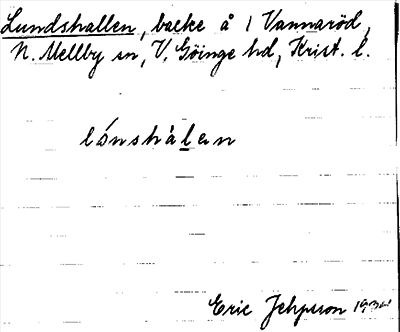 Lundshallen, backe å 1 Vannaröd,
N. Mellby sn, V. Göinge hd, Krist. l.
lónshàlen
Eric Jehpsson 193